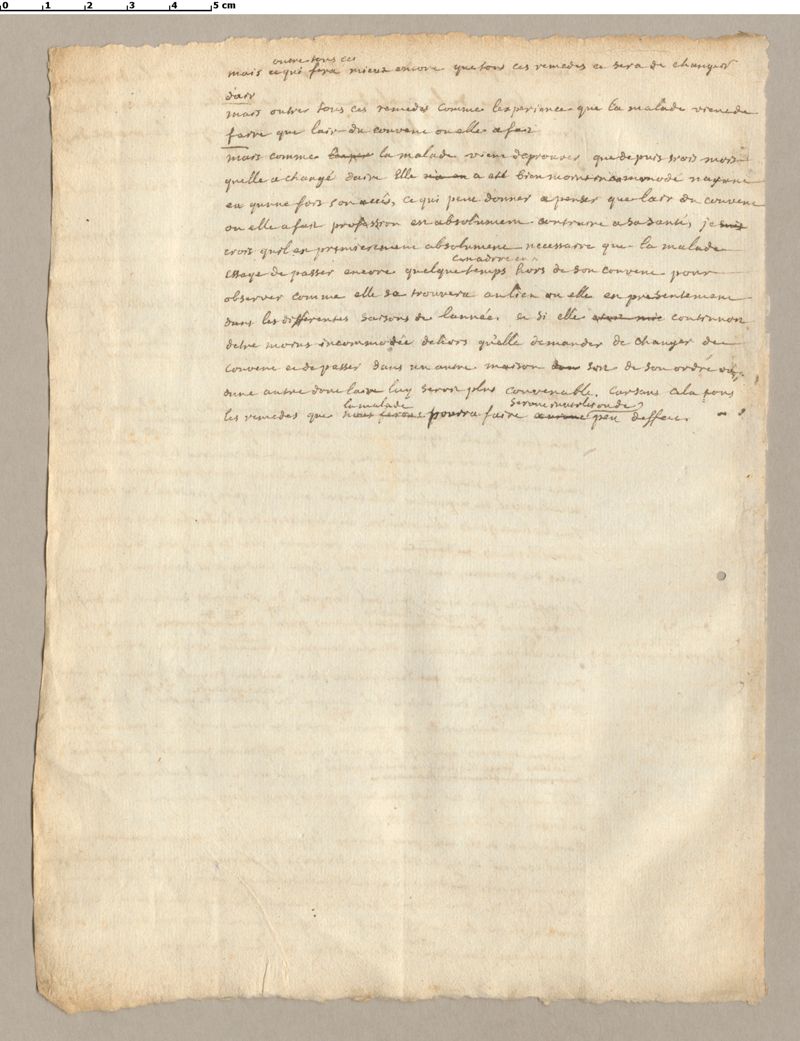 0 1 2 3 4 5 cm
outre tous ces
mais ce qui fera mieux encore que tous ces remedes ce sera de changer
d'air
mais outrer tous ces remedes comme lexperience que la malade vient de
faire que lair du couvent ou elle a fait
mais comme la malade vient deprouver que depuis trois mois
quelle a changé daire elle a esté bien moins incommodé nayant
eu qu'une fois son accés, ce qui peut donner a penser que lair du couvent
ou elle a fait profession est absolument contraire a sa santé, je suis
crois quil est premierement absolument necessaire que la malade
essaye de passer encore quelque temps hors de son couvent pour
observer comme elle se trouvera au lieu ou elle est presentement
dans les differentes saisons de lannée, et si elle continuoit
detre moins incommodée dehors qu'elle demander de changer de
couvent et de passer dans un autre maison soit de son ordre ou
dune autre dont laire luy seroit plus convenable. car sans cela tous
la malade
les remedes que nous ferons pourra faire peu deffect.